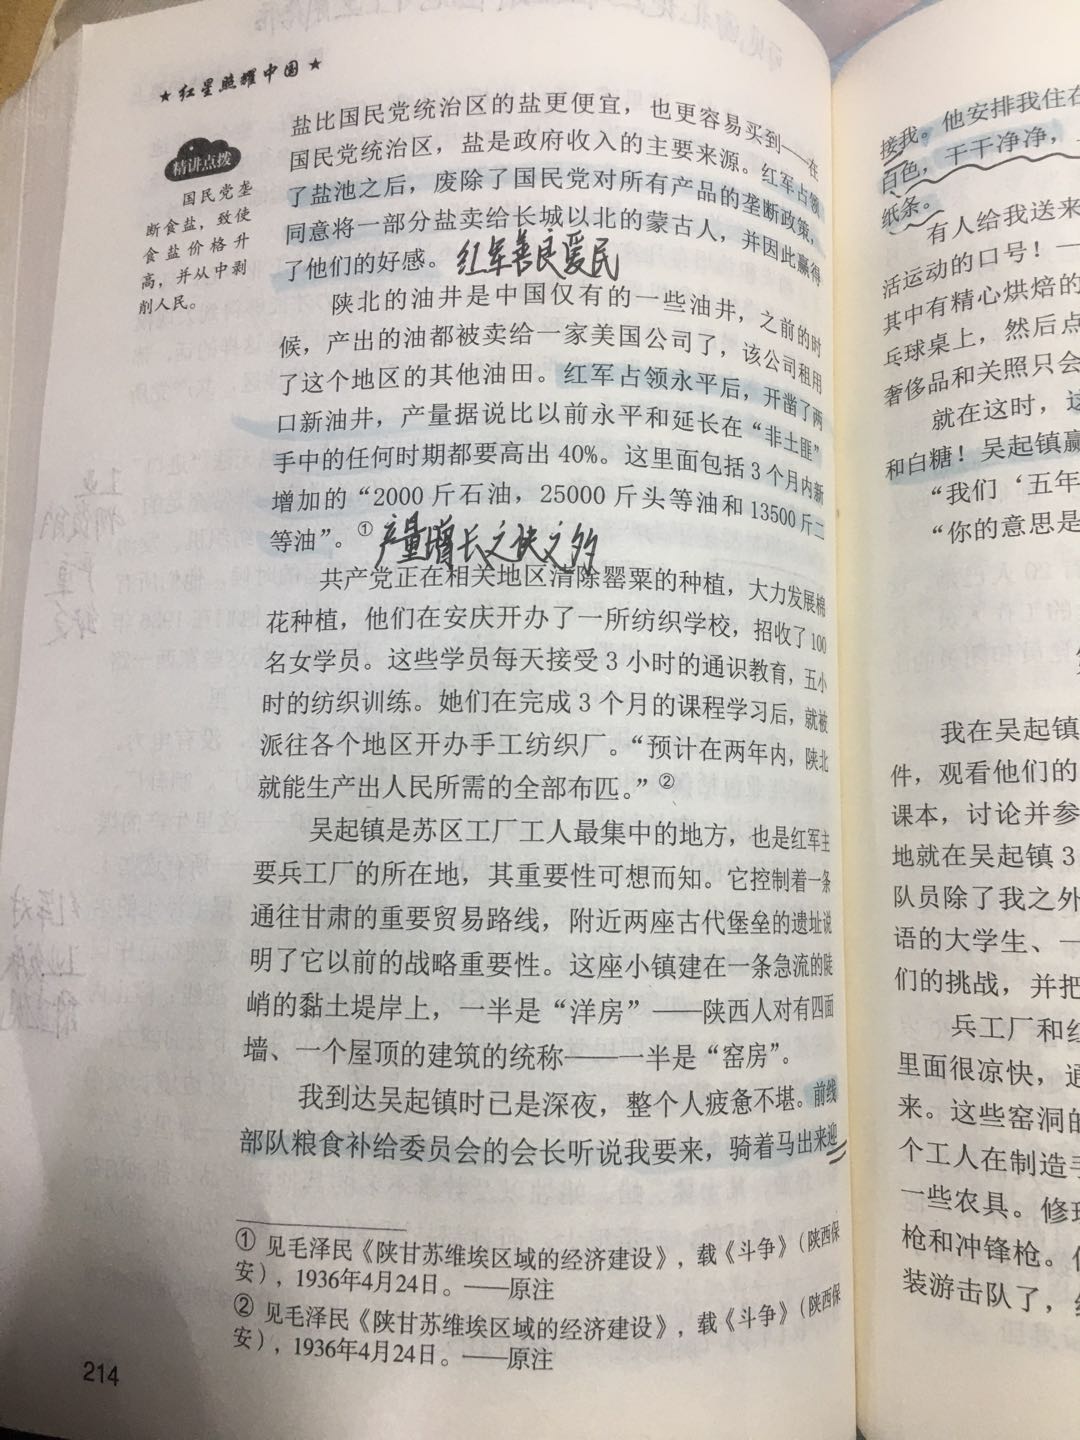 ★ 红星照耀中国 ★
精讲点拨
国民党垄
断食盐，致使
食盐价格升
高，并从中剥
削人民。
盐比国民党统治区的盐更便宜，也更容易买到——在
国民党统治区，盐是政府收入的主要来源。红军占领
了盐池之后，废除了国民党对所有产品的垄断政策，
同意将一部分盐卖给长城以北的蒙古人，并因此赢得
了他们的好感。 红军善良爱民
陕北的油井是中国仅有的一些油井，之前的时
候，产出的油都被卖给一家美国公司了，该公司租用
了这个地区的其他油田。红军占领永平后，开凿了两
口新油井，产量据说比以前永平和延长在“非土匪”
手中的任何时期都要高出 40%。这里面包括 3 个月内新
增加的“2000 斤石油，25000 斤头等油和 13500 斤二
等油”。① 产量增长之快之多
共产党正在相关地区清除罂粟的种植，大力发展棉
花种植，他们在安庆开办了一所纺织学校，招收了 100
名女学员。这些学员每天接受 3 小时的通识教育，五小
时的纺织训练。她们在完成 3 个月的课程学习后，就被
派往各个地区开办手工纺织厂。“预计在两年内，陕北
就能生产出人民所需的全部布匹。”②
吴起镇是苏区工厂工人最集中的地方，也是红军主
要兵工厂的所在地，其重要性可想而知。它控制着一条
通往甘肃的重要贸易路线，附近两座古代堡垒的遗址说
明了它以前的战略重要性。这座小镇建在一条急流的陡
峭的黏土堤岸上，一半是“洋房”——陕西人对有四面
墙、一个屋顶的建筑的统称——一半是“窑房”。
我到达吴起镇时已是深夜，整个人疲惫不堪。前线
部队粮食补给委员会的会长听说我要来，骑着马出来迎
① 见毛泽民《陕甘苏维埃区域的经济建设》，载《斗争》（陕西保
安），1936年4月24日。——原注
② 见毛泽民《陕甘苏维埃区域的经济建设》，载《斗争》（陕西保
安），1936年4月24日。——原注
214
接我。他安排我住在
百色，干干净净，
纸条。
有人给我送来
活运动的口号！—
其中有精心烘焙的
乓球桌上，然后点
奢侈品和关照只会
就在这时，这
和白糖！吴起镇赢
“我们‘五年
“你的意思是
我在吴起镇
件，观看他们的
课本，讨论并参
地就在吴起镇 3
队员除了我之外
语的大学生、一
们的挑战，并把
兵工厂和红
里面很凉快，通
来。这些窑洞的
个工人在制造手
一些农具。修理
枪和冲锋枪。但
装游击队了，